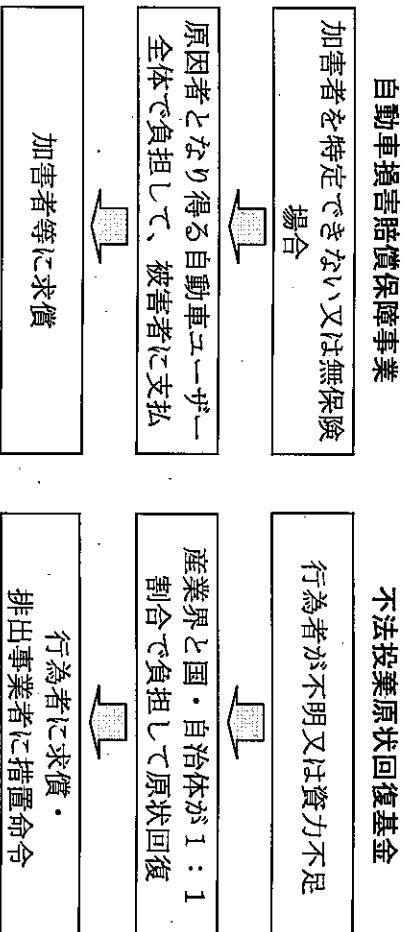 自動車損害賠償保障事業
加害者を特定できない又は無保険
場合
原因者となり得る自動車ユーザー
全体で負担して、被害者に支払
加害者等に求償
不法投棄原状回復基金
行為者が不明又は資力不足
産業界と国・自治体が1:1
割合で負担して原状回復
行為者に求償・
排出事業者に措置命令